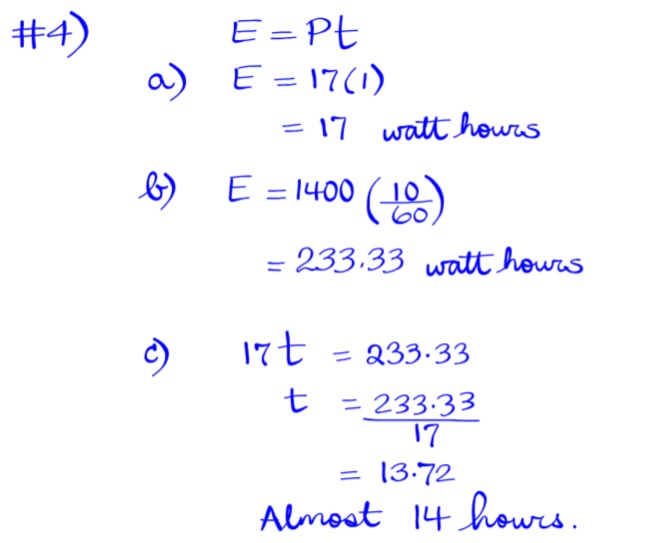 #4) E = Pt
a) E = 17(1)
= 17 watt hours
b) E = 1400 (10/60)
= 233.33 watt hours
c) 17t = 233.33
t = 233.33/17
= 13.72
Almost 14 hours.